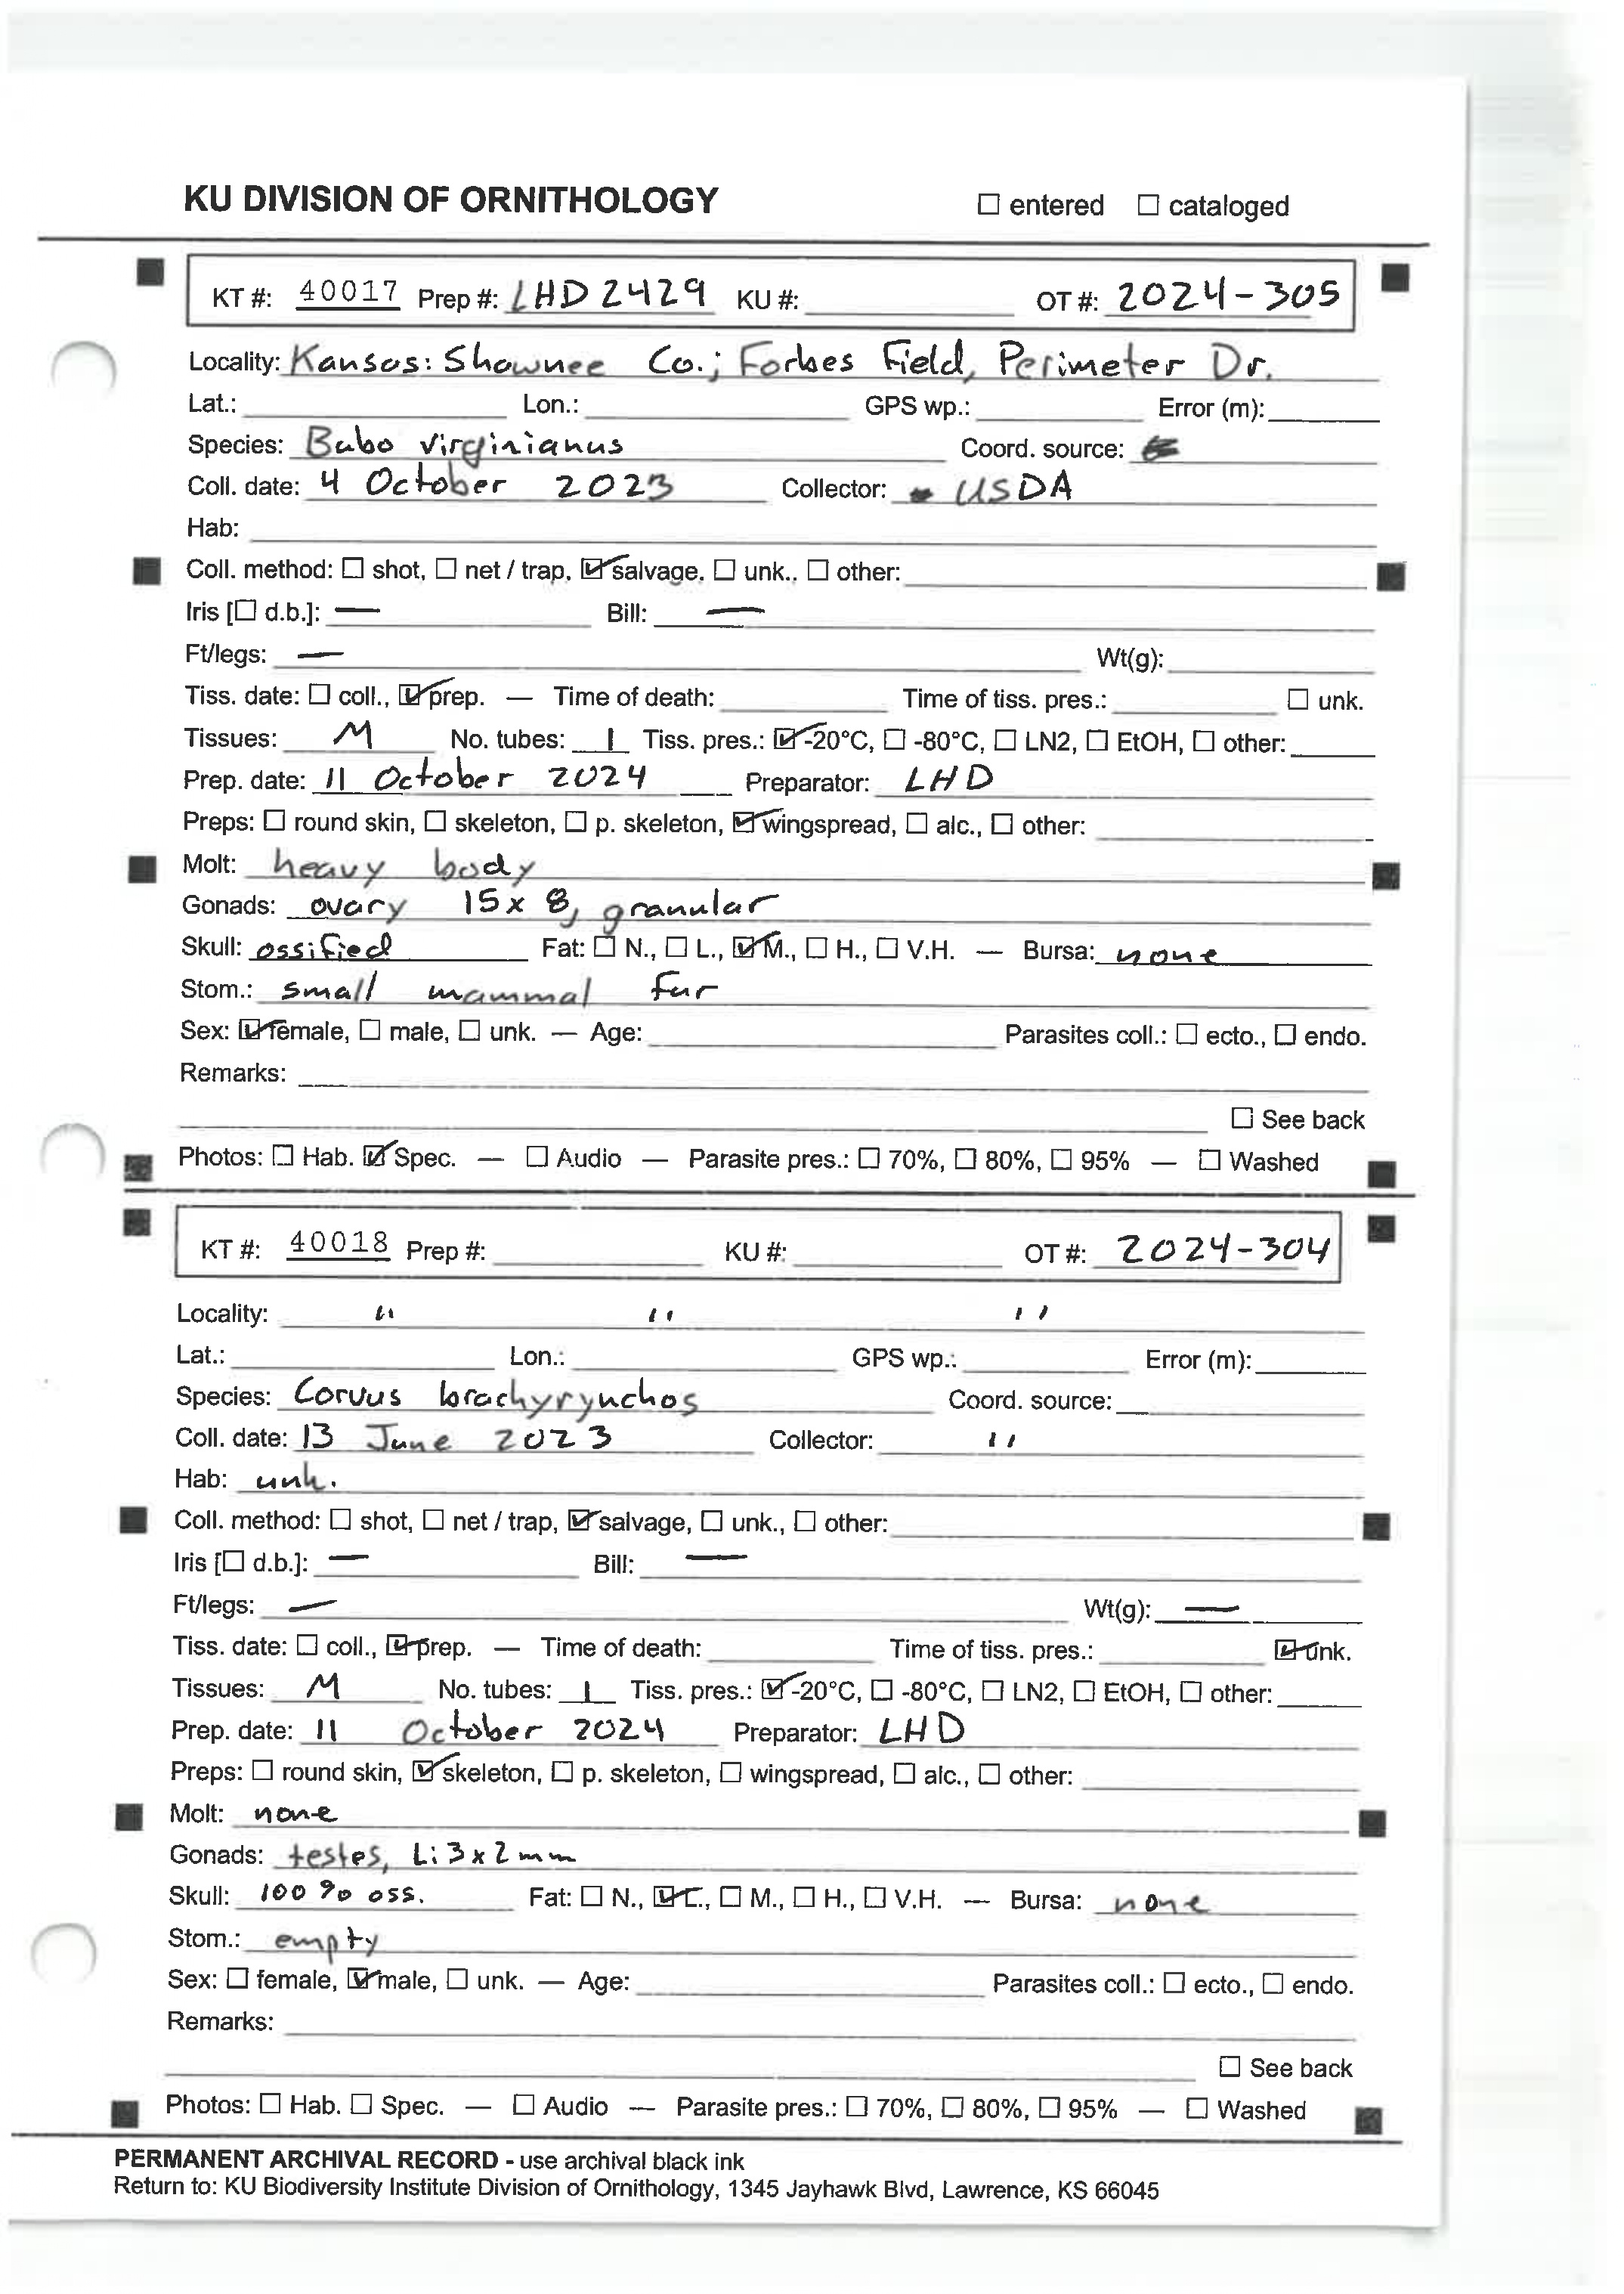 KU DIVISION OF ORNITHOLOGY ☐ entered ☐ cataloged
KT #: 40017 Prep #: LHD 2429 KU #: OT #: 2024-305
Locality: Kansas: Shawnee Co.; Forbes Field, Perimeter Dr.
Lat.: Lon.: GPS wp.: Error (m):
Species: Bubo virginianus Coord. source:
Coll. date: 4 October 2023 Collector: USDA
Hab:
Coll. method: ☐ shot, ☐ net / trap, ☑ salvage, ☐ unk., ☐ other:
Iris [☐ d.b.]: — Bill: —
Ft/legs: — Wt(g):
Tiss. date: ☐ coll., ☑ prep. — Time of death: Time of tiss. pres.: ☐ unk.
Tissues: M No. tubes: 1 Tiss. pres.: ☑ -20°C, ☐ -80°C, ☐ LN2, ☐ EtOH, ☐ other:
Prep. date: 11 October 2024 Preparator: LHD
Preps: ☐ round skin, ☐ skeleton, ☐ p. skeleton, ☑ wingspread, ☐ alc., ☐ other:
Molt: heavy body
Gonads: ovary 15 x 8, granular
Skull: ossified Fat: ☐ N., ☐ L., ☑ M., ☐ H., ☐ V.H. — Bursa: none
Stom.: small mammal fur
Sex: ☑ female, ☐ male, ☐ unk. — Age: Parasites coll.: ☐ ecto., ☐ endo.
Remarks:
☐ See back
Photos: ☐ Hab. ☑ Spec. — ☐ Audio — Parasite pres.: ☐ 70%, ☐ 80%, ☐ 95% — ☐ Washed
KT #: 40018 Prep #: KU #: OT #: 2024-304
Locality: " " "
Lat.: Lon.: GPS wp.: Error (m):
Species: Corvus brachyrynchos Coord. source:
Coll. date: 13 June 2023 Collector: "
Hab: unk.
Coll. method: ☐ shot, ☐ net / trap, ☑ salvage, ☐ unk., ☐ other:
Iris [☐ d.b.]: — Bill: —
Ft/legs: — Wt(g): —
Tiss. date: ☐ coll., ☑ prep. — Time of death: Time of tiss. pres.: ☑ unk.
Tissues: M No. tubes: 1 Tiss. pres.: ☑ -20°C, ☐ -80°C, ☐ LN2, ☐ EtOH, ☐ other:
Prep. date: 11 October 2024 Preparator: LHD
Preps: ☐ round skin, ☑ skeleton, ☐ p. skeleton, ☐ wingspread, ☐ alc., ☐ other:
Molt: none
Gonads: testes, L: 3 x 2 mm
Skull: 100 % oss. Fat: ☐ N., ☑ L., ☐ M., ☐ H., ☐ V.H. — Bursa: none
Stom.: empty
Sex: ☐ female, ☑ male, ☐ unk. — Age: Parasites coll.: ☐ ecto., ☐ endo.
Remarks:
☐ See back
Photos: ☐ Hab. ☐ Spec. — ☐ Audio — Parasite pres.: ☐ 70%, ☐ 80%, ☐ 95% — ☐ Washed
PERMANENT ARCHIVAL RECORD - use archival black ink
Return to: KU Biodiversity Institute Division of Ornithology, 1345 Jayhawk Blvd, Lawrence, KS 66045